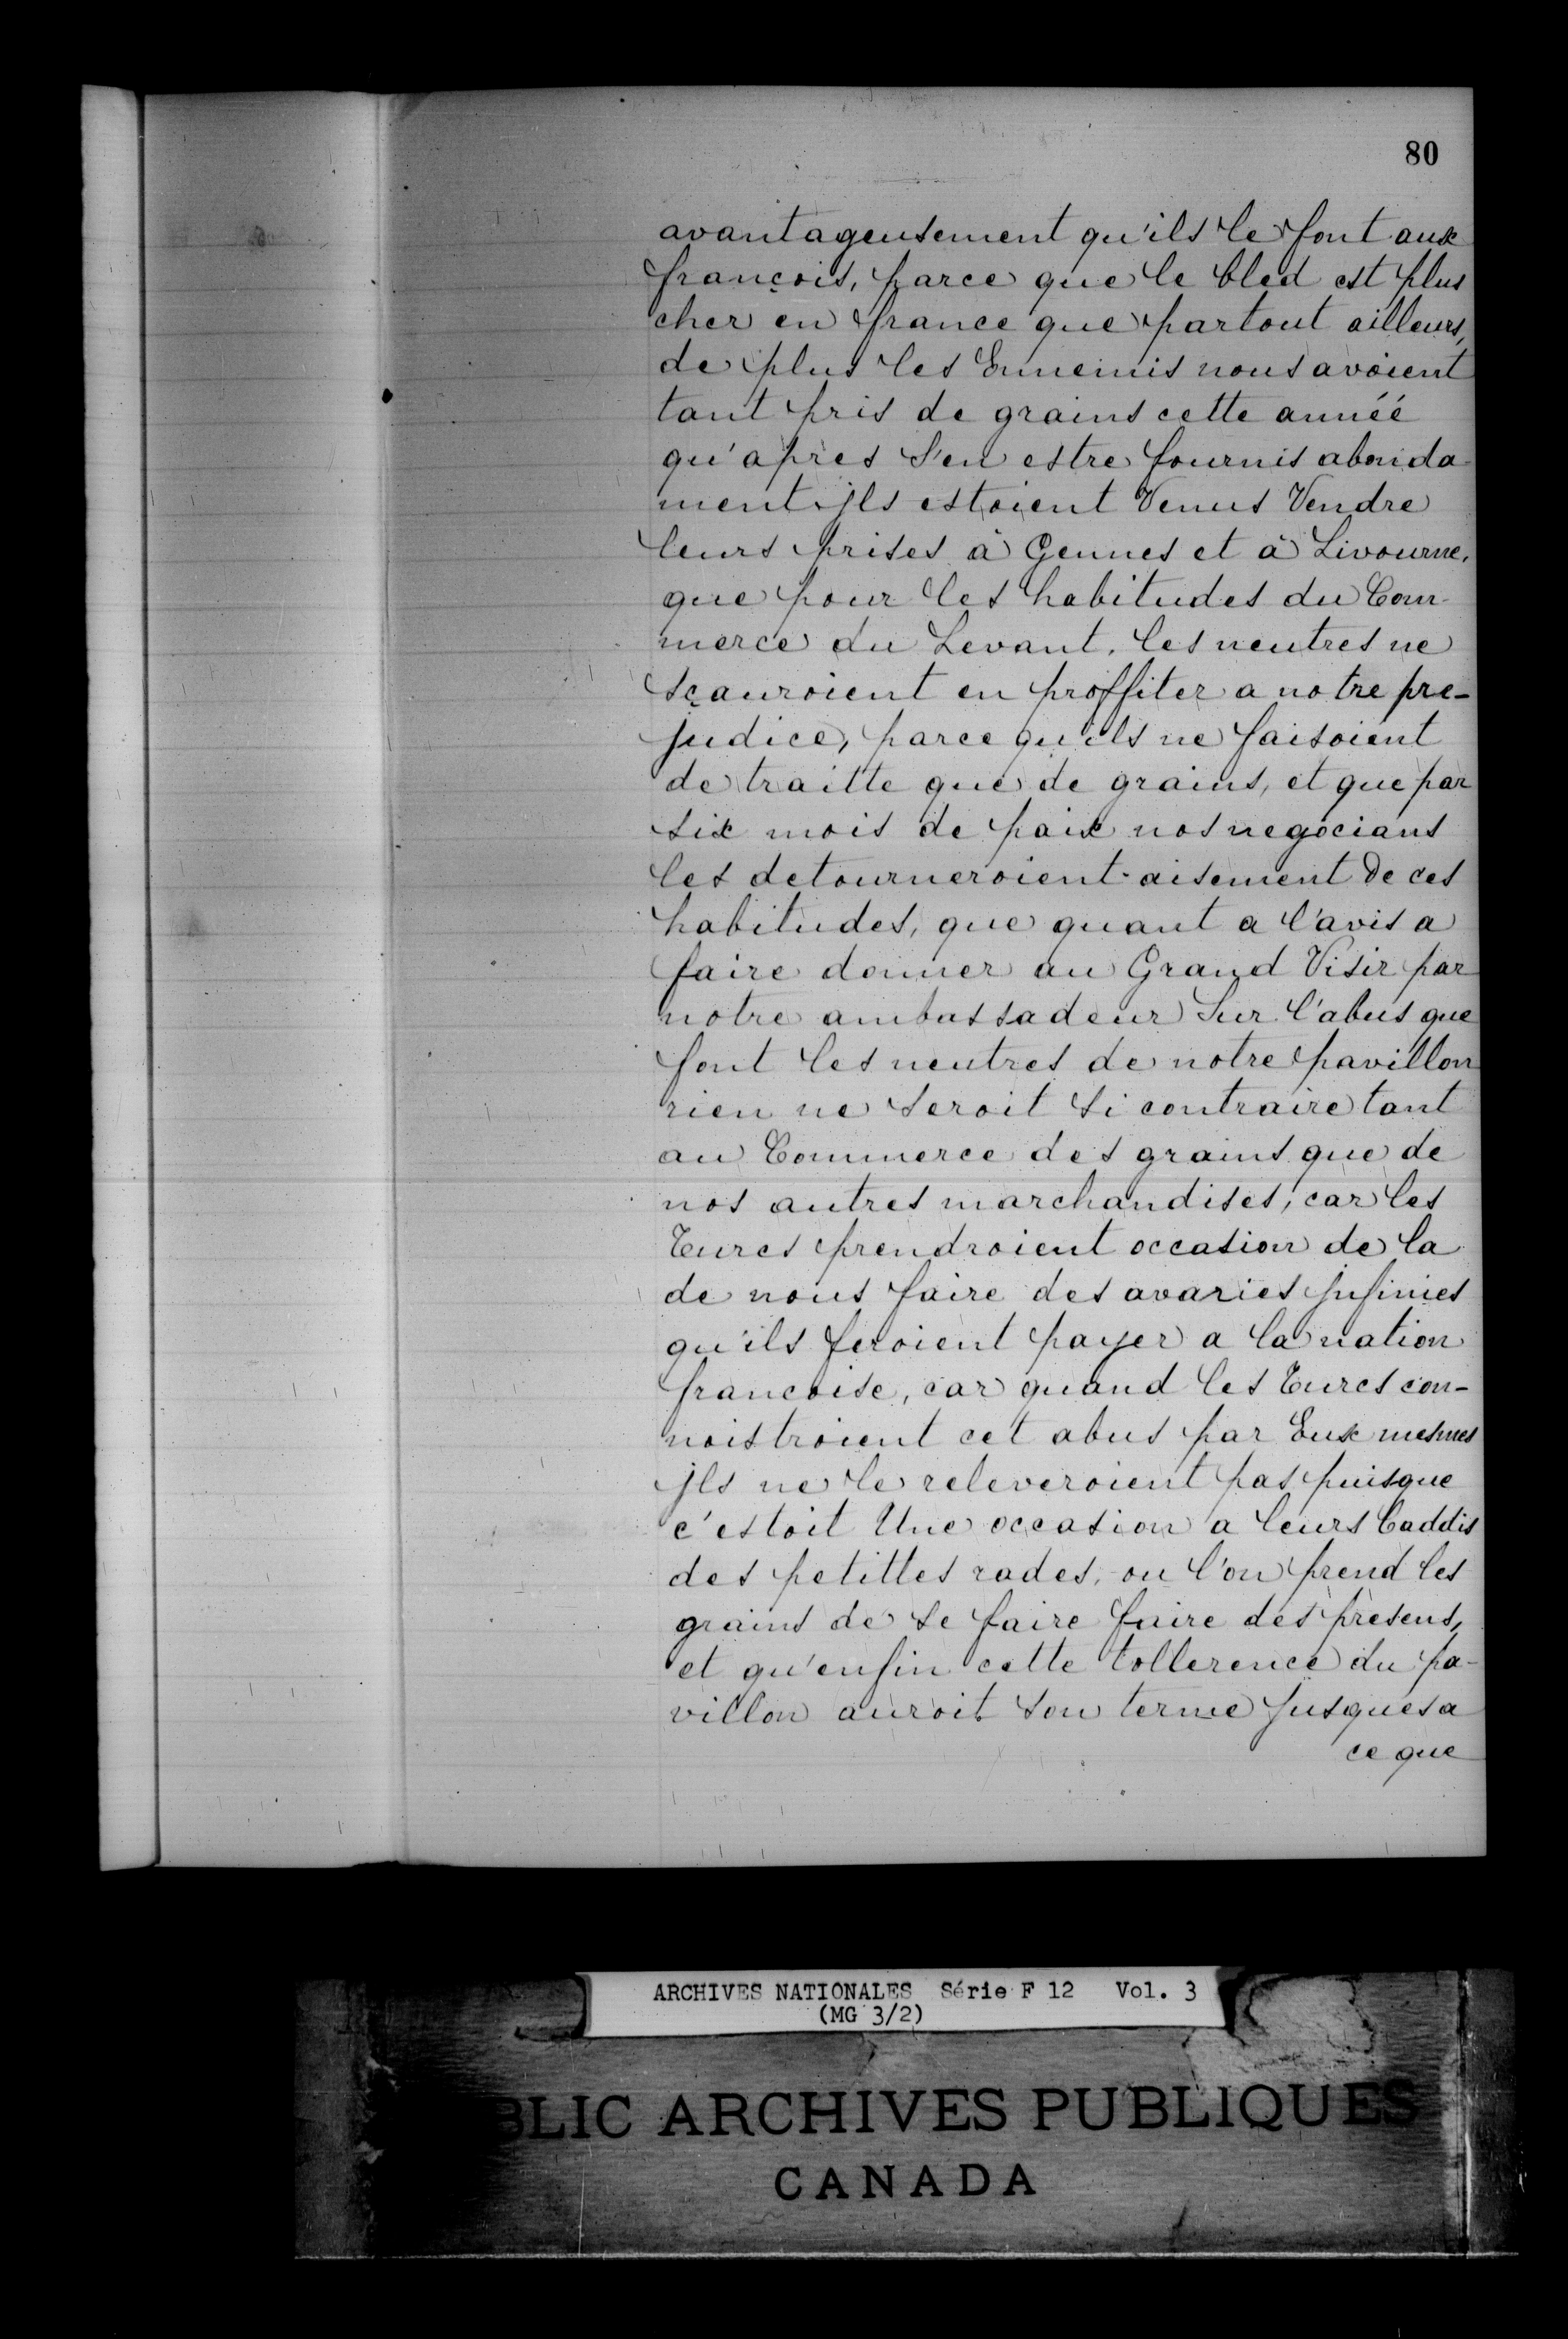 80
avantageusement qu'ils le font aux
françois, parce que le bled est plus
cher en france que partout ailleurs,
de plus les Ennemis nous avoient
tant pris de grains cette année
qu'apres s'en estre fournis abonda-
ment jls estoient Venus Vendre
leurs prises à Gennes et à Livourne,
que pour les habitudes du Com-
merce du Levant, les neutres ne
sçauroient en proffiter a notre pre-
judice, parce qu'ils ne faisoient
de traitte que de grains, et que par
six mois de paix nos negocians
les detourneroient aisement de ces
habitudes, que quant a l'avis a
faire donner au Grand Visir par
notre ambassadeur sur l'abus que
font les neutres de notre pavillon
rien ne seroit si contraire tant
au Commerce des grains que de
nos autres marchandises, car les
Turcs prendroient occasion de la
de nous faire des avaries jnfinies
qu'ils feroient payer a la nation
francoise, car quand les Turcs con-
noistroient cet abus par Eux mesmes
jls ne le releveroient pas puisque
c'estoit Une occasion a leurs Caddis
des petittes rades, ou l'on prend les
grains de se faire faire des presens,
et qu'enfin cette tollerence du pa-
villon auroit son terme jusques a
ce que
ARCHIVES NATIONALES Série F 12 Vol. 3
(MG 3/2)
BLIC ARCHIVES PUBLIQUES
CANADA